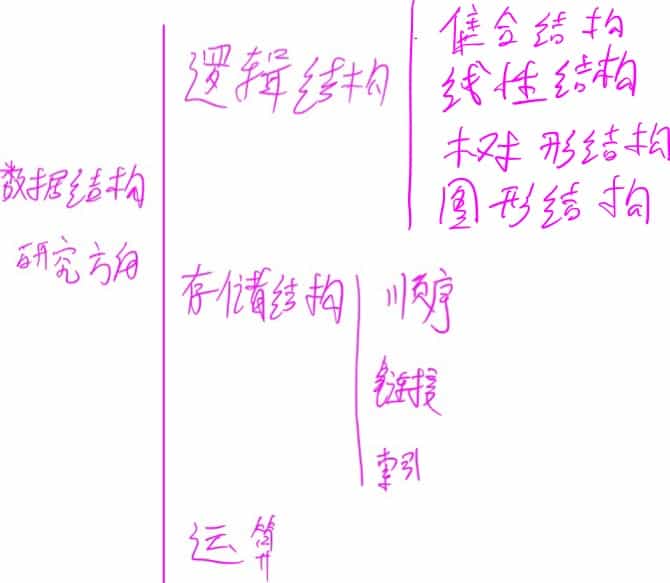 数据结构
研究方向
逻辑结构
集合结构
线性结构
树形结构
图形结构
存储结构
顺序
链接
索引
运算